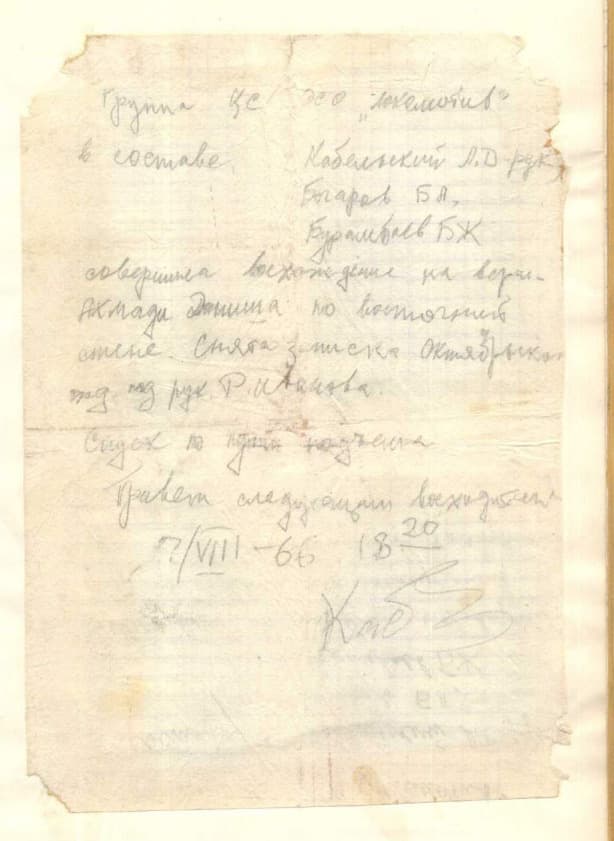 Группа ЦС ДСО „Локомотив"
в составе Кабельский Л.Д-рук
Богаров Б А,
Бурамбаев Б Ж
совершила восхождение на верш.
Ахмади Дониша по восточной
стене. Снята записка
под рук. Р. Иванова.
Спуск по пути подъема
Привет следующим восходителям
7/VIII -66 18 20